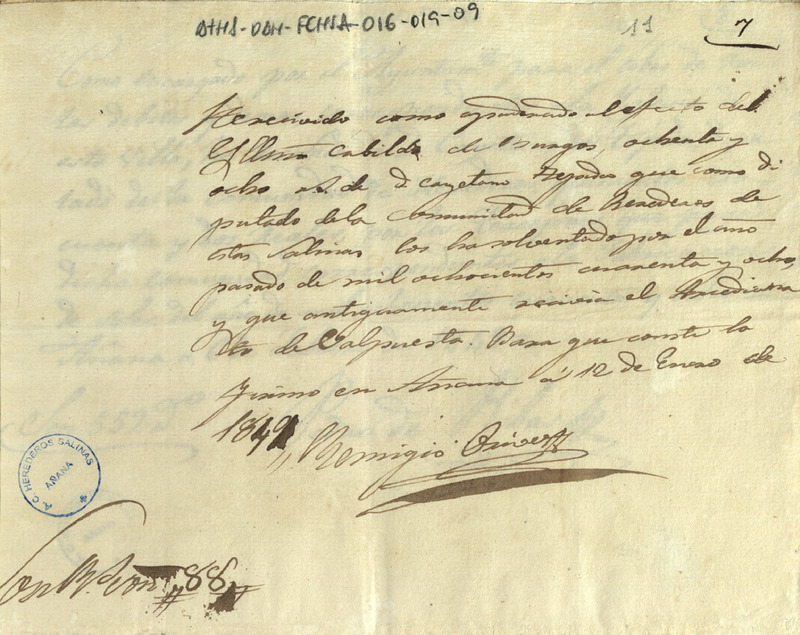 ATHA-DAH-FCHSA-016-019-09
11 7
He recivido como apoderado al efecto del
Yllmo Cabildo de Burgos, ochenta y
ocho rs. de d. Cayetano Tejada que como di
putado de la Comunidad de Herederos de
estas Salinas los ha solventado por el año
pasado de mil ochocientos cuarenta y ocho,
y que antiguamente recivia el Arcediana
to de Valpuesta. Para que conste lo
firmo en Anana a 12 de Enero de
1849,, Remigio
Son Rs. von #88#
A.C. HEREDEROS SALINAS AÑANA